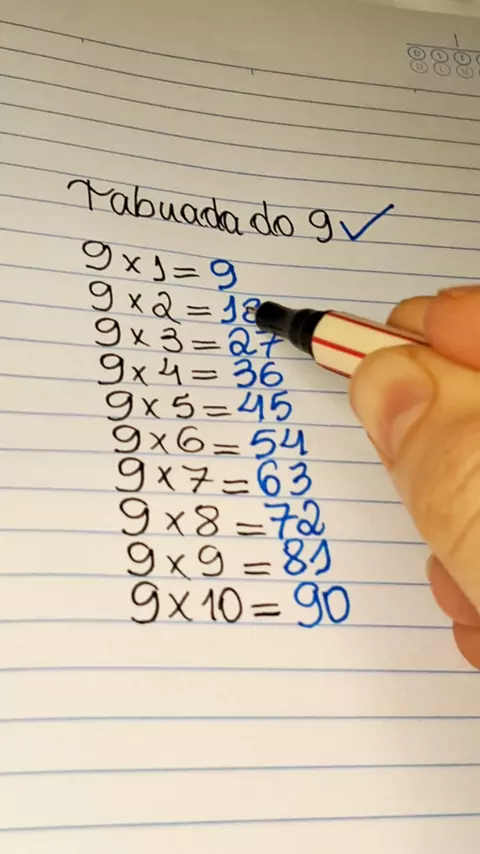 Tabuada do 9 ✓
9 x 1 = 9
9 x 2 = 18
9 x 3 = 27
9 x 4 = 36
9 x 5 = 45
9 x 6 = 54
9 x 7 = 63
9 x 8 = 72
9 x 9 = 81
9 x 10 = 90